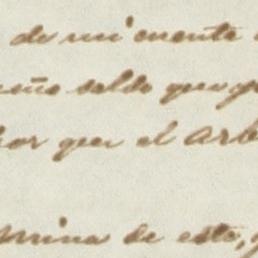 de mi cuenta
saldo que
por que el Arb
mina de este,